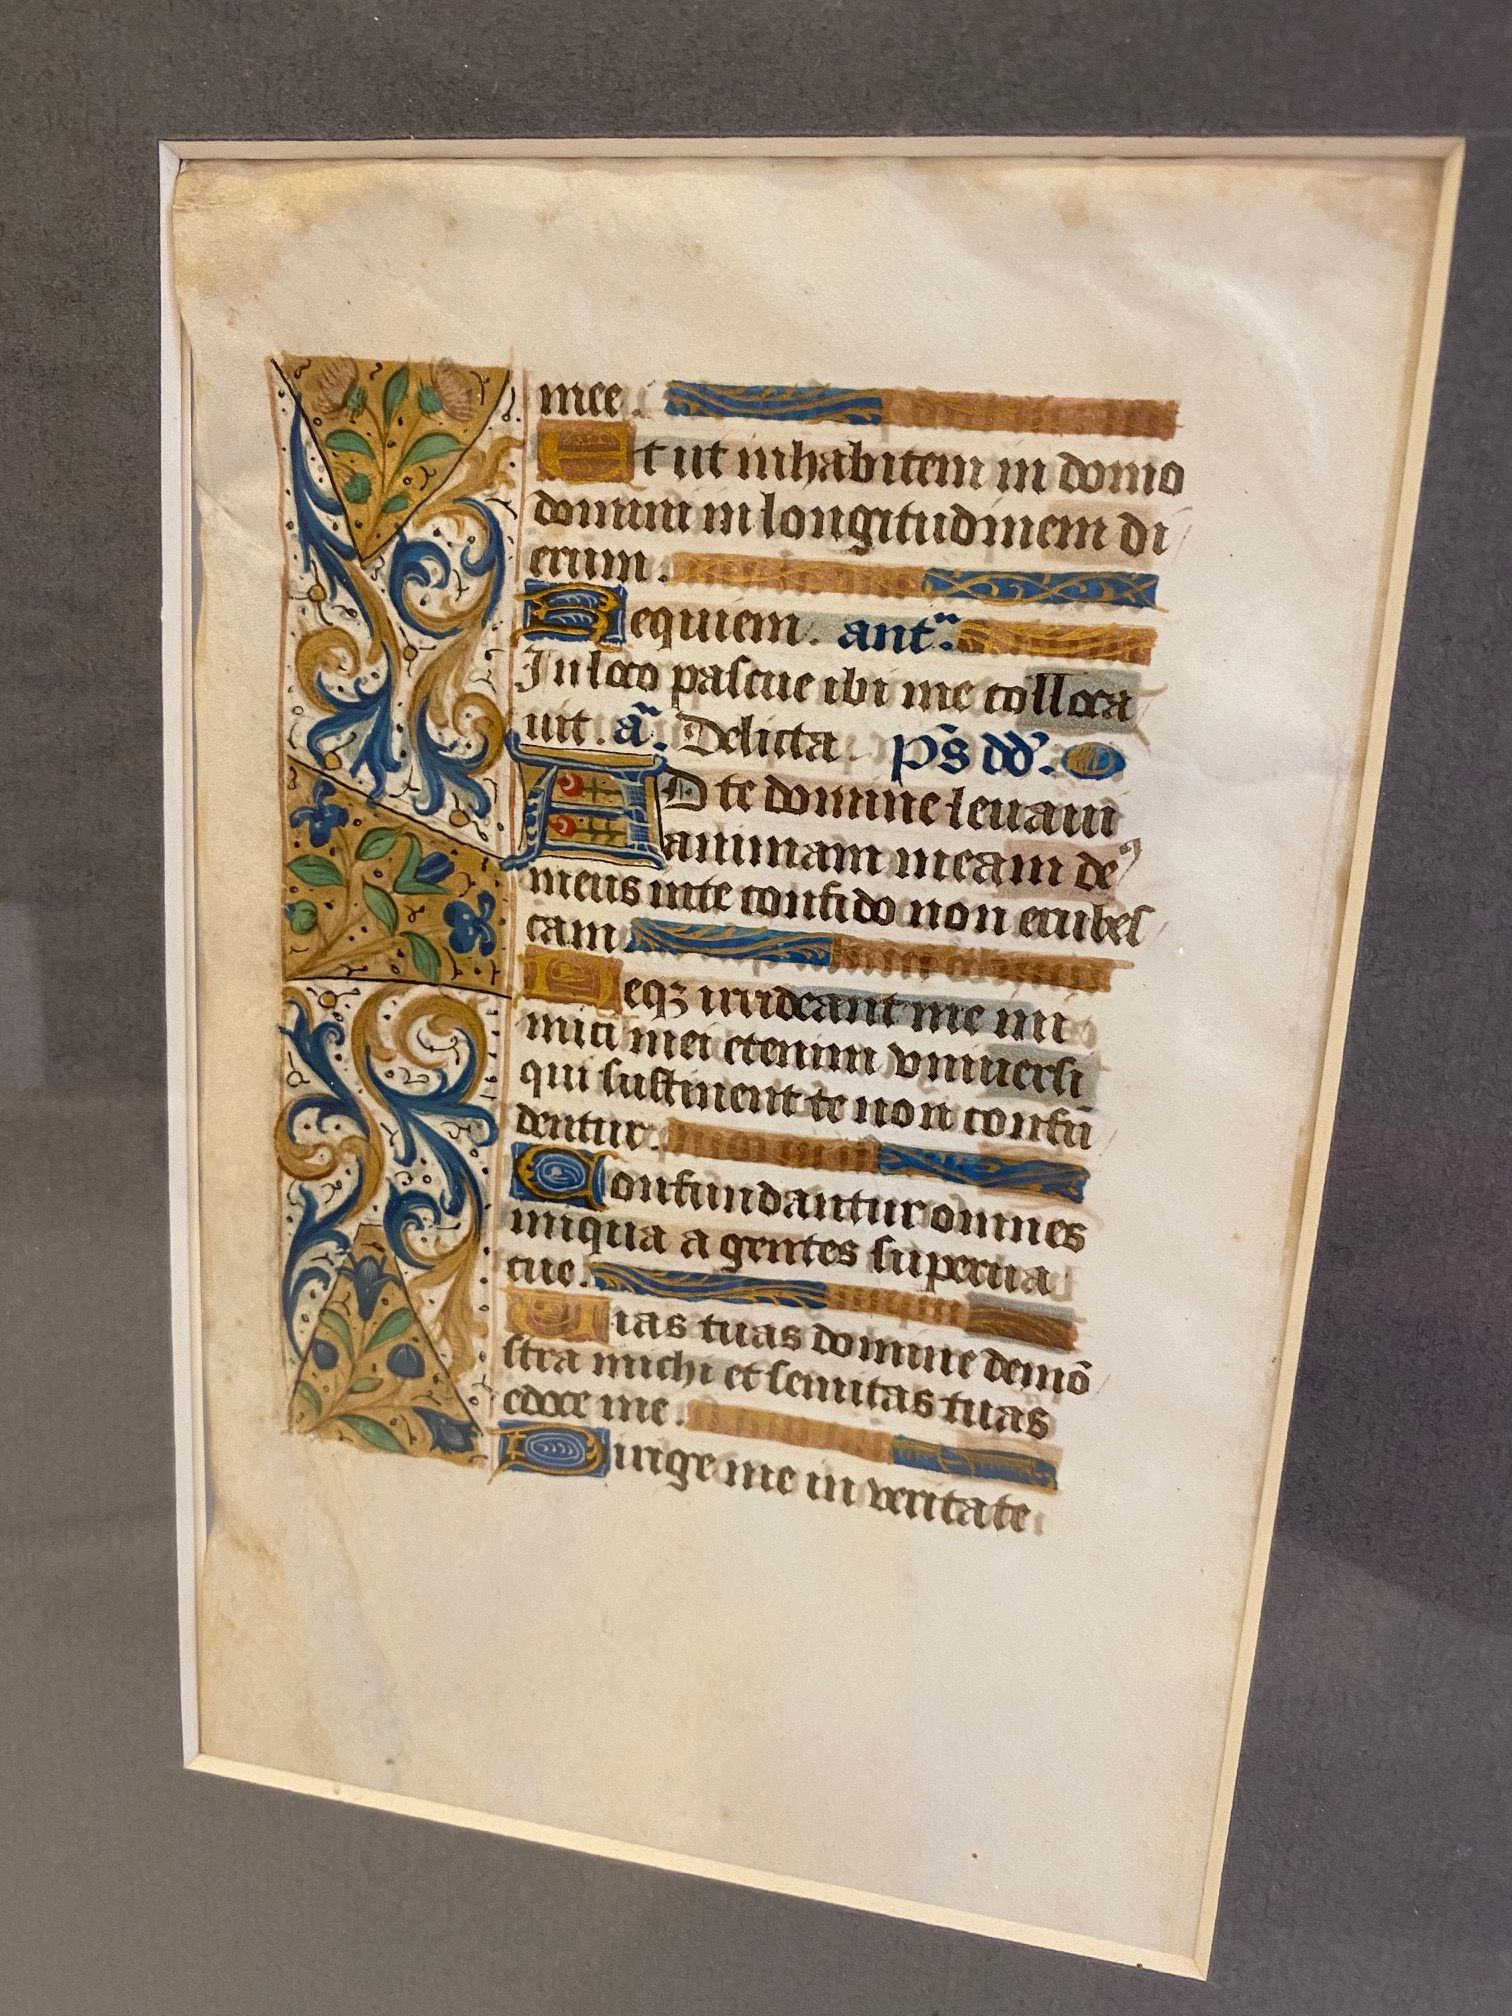 mee.
Et ut inhabitem in domo
domini in longitudinem di
erum.
Requiem. ant.
In loco pascue ibi me colloca
uit. a. Delicta. ps dd.
AD te domine leuaui
animam meam de9
meus inte confido non erubes
cam
Neqz irrideant me ini
mici mei etenim vniuersi
qui sustinent te non confū
dentur.
Confundantur omnes
iniqua agentes superua
cue.
Uias tuas domine demō
stra michi et semitas tuas
edoce me.
Dirige me in veritate